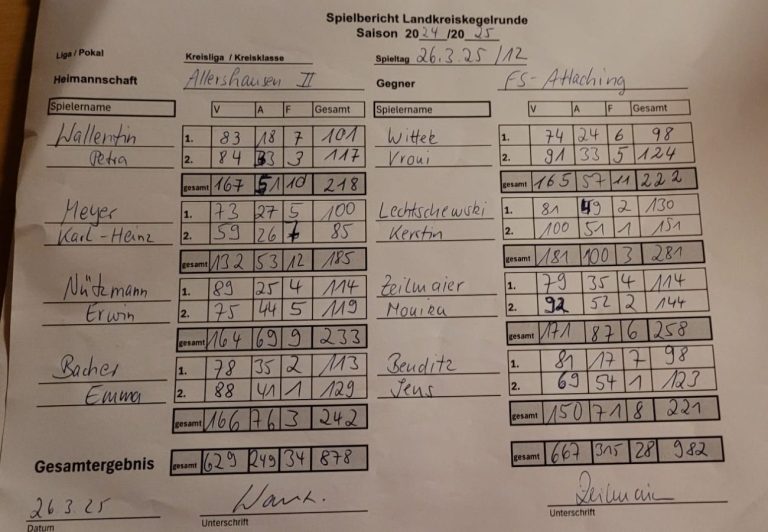 Spielbericht Landkreiskegelrunde
Saison 2024/2025
Liga / Pokal Kreisliga / Kreisklasse Spieltag 26.3.25 /12
Heimannschaft Allershausen II Gegner FS-Attaching
Spielername V A F Gesamt Spielername V A F Gesamt
Wallentin 1. 83 18 7 101 Wittek 1. 74 24 6 98
Petra 2. 84 33 3 117 Vroni 2. 91 33 5 124
gesamt 167 51 10 218 gesamt 165 57 11 222
Meyer 1. 73 27 5 100 Lechtschewski 1. 81 49 2 130
Karl-Heinz 2. 59 26 7 85 Kerstin 2. 100 51 1 151
gesamt 132 53 12 185 gesamt 181 100 3 281
Nützmann 1. 89 25 4 114 Zeilmaier 1. 79 35 4 114
Erwin 2. 75 44 5 119 Monika 2. 92 52 2 144
gesamt 164 69 9 233 gesamt 171 87 6 258
Bacher 1. 78 35 2 113 Benditz 1. 81 17 7 98
Emma 2. 88 41 1 129 Jens 2. 69 54 1 123
gesamt 166 76 3 242 gesamt 150 71 8 221
Gesamtergebnis gesamt 629 249 34 878 gesamt 667 315 28 982
26.3.25 Zeilmaier
Datum Unterschrift Unterschrift